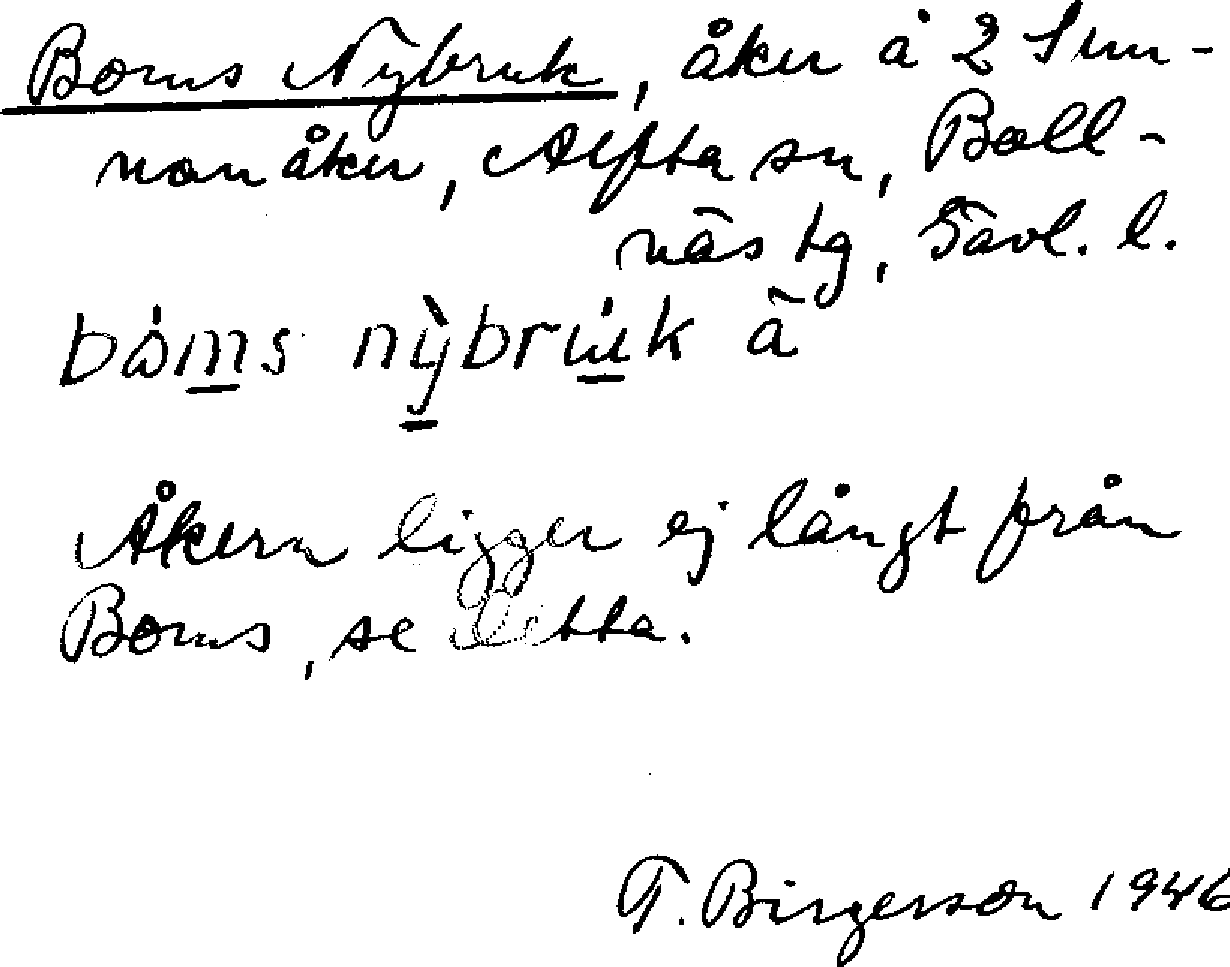 Boms Nybruk, åker å 2 Sun-
nanåker, Alfta sn, Boll-
näs tg, Gävl. l.
bòms nỳbruk ā
Åkern ligger ej långt från
Boms, se detta.
T. Birgerson 1946